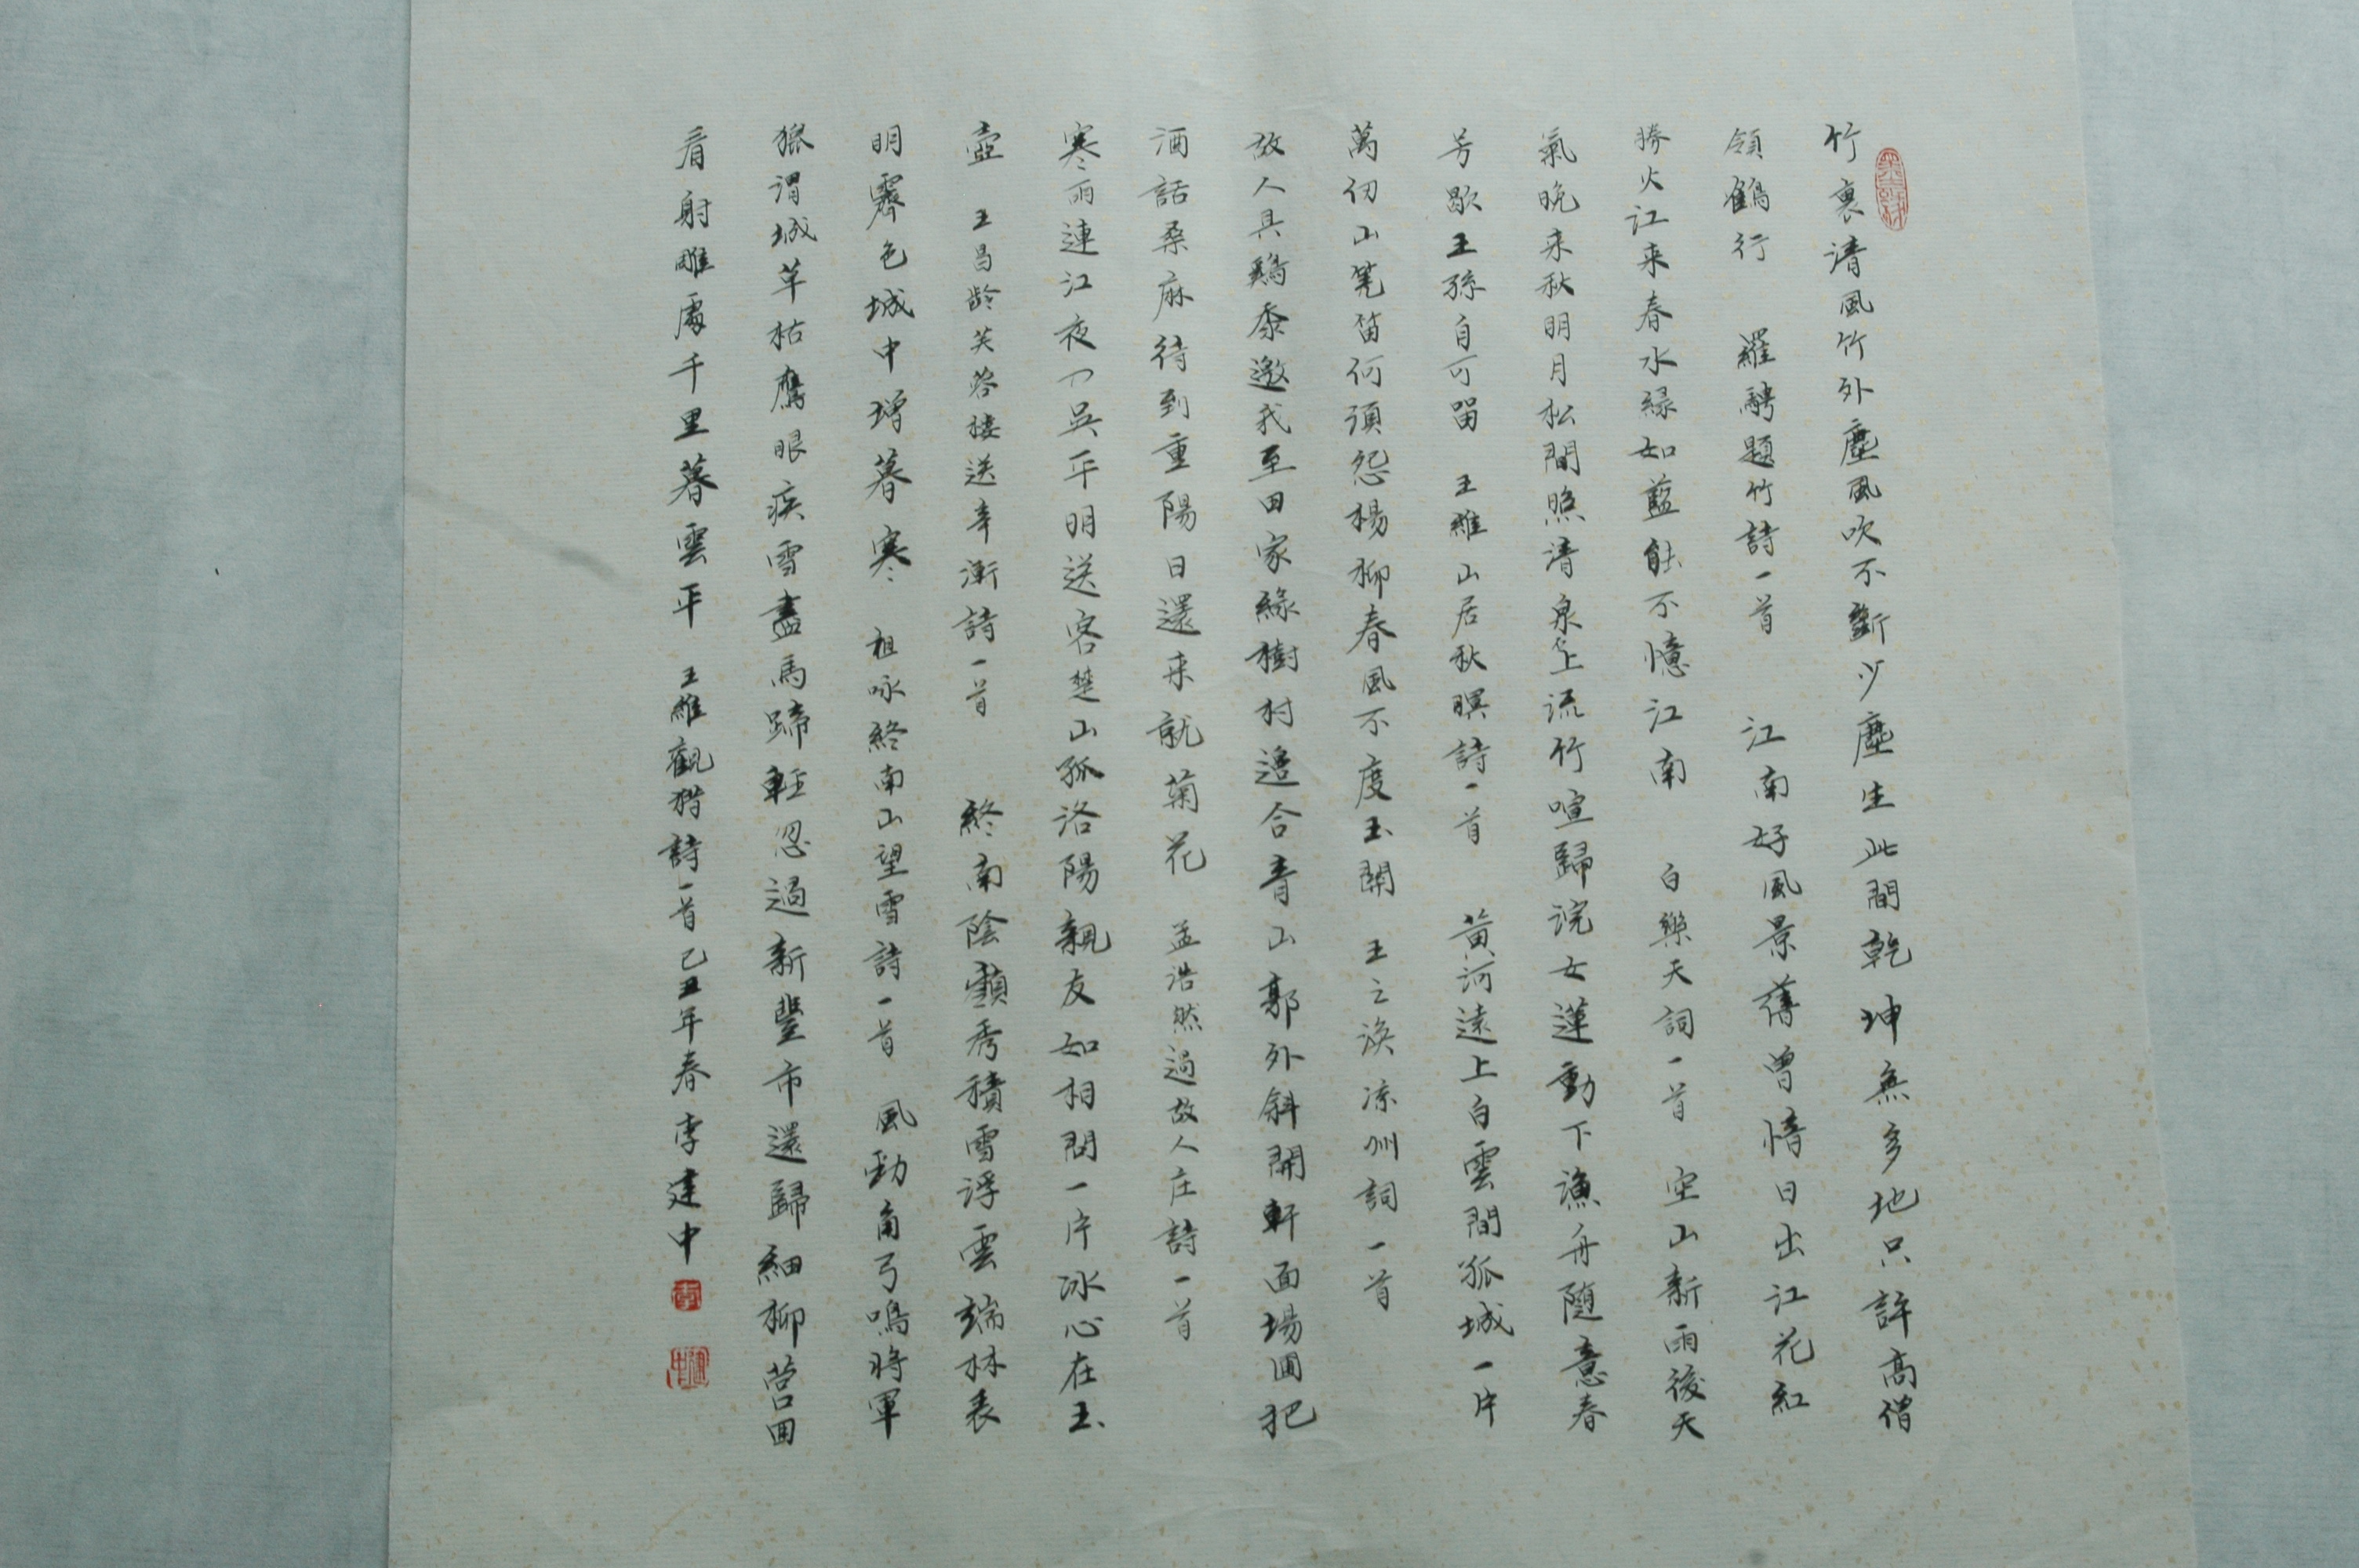 竹裏清風竹外塵風吹不斷少塵生此間乾坤無多地只許高僧
領鶴行 羅聘題竹詩一首 江南好風景舊曾憶日出江花紅
勝火江來春水綠如藍能不憶江南 白樂天詞一首 空山新雨後天
氣晚来秋明月松間照清泉石上流竹喧歸浣女蓮動下漁舟隨意春
芳歇王孫自可留 王維山居秋暝詩一首 黃河遠上白雲間孤城一片
萬仞山羌笛何須怨楊柳春風不度玉關 王之渙涼州詞一首
故人具鷄黍邀我至田家綠樹村邊合青山郭外斜開軒面場圃把
酒話桑麻待到重陽日還来就菊花 孟浩然過故人庄詩一首
寒雨連江夜入吳平明送客楚山孤洛陽親友如相問一片冰心在玉
壺 王昌齡芙蓉樓送辛漸詩一首 終南陰嶺秀積雪浮雲端林表
明霽色城中增暮寒 祖咏終南山望雪詩一首 風勁角弓鳴將軍
獵渭城草枯鷹眼疾雪盡馬蹄輕忽過新豐市還歸細柳營回
看射雕處千里暮雲平 王維觀猎詩一首己丑年春李建中
李
建中